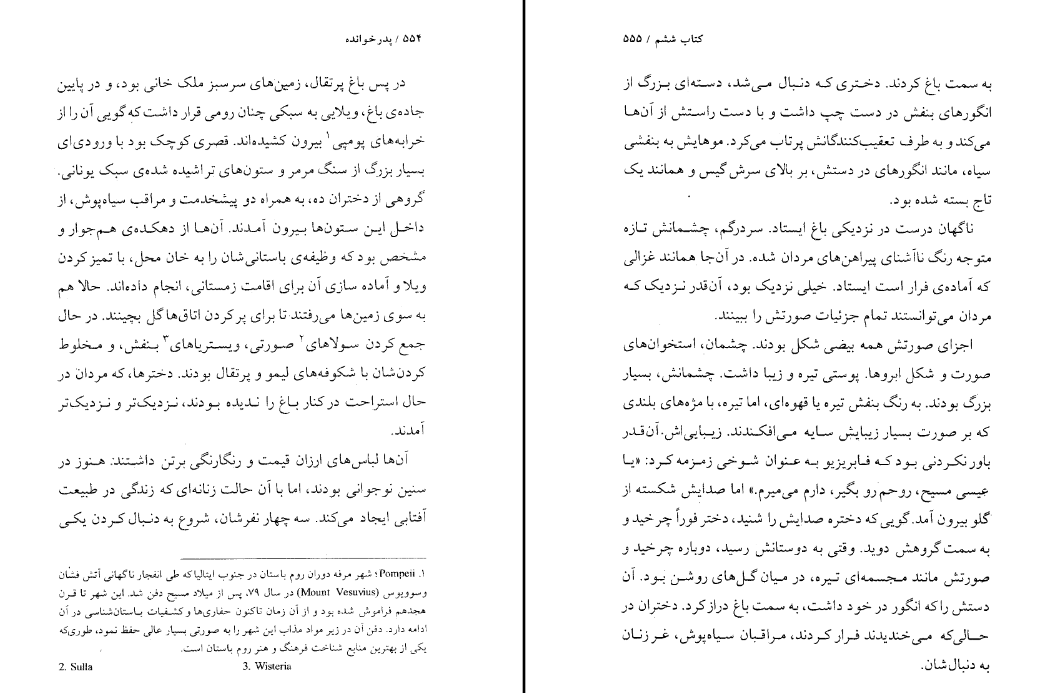 ۵۵۴ / پدرخوانده
در پس باغ پرتقال، زمین‌های سرسبز ملک خانی بود، و در پایین
جاده‌ی باغ، ویلایی به سبکی چنان رومی قرار داشت که گویی آن را از
خرابه‌های پومپی۱ بیرون کشیده‌اند. قصری کوچک بود با ورودی‌ای
بسیار بزرگ از سنگ مرمر و ستون‌های تراشیده شده‌ی سبک یونانی.
گروهی از دختران ده، به همراه دو پیشخدمت و مراقب سیاه‌پوش، از
داخل این ستون‌ها بیرون آمدند. آن‌ها از دهکده‌ی هم‌جوار و
مشخص بود که وظیفه‌ی باستانی‌شان را به خان محل، با تمیز کردن
ویلا و آماده سازی آن برای اقامت زمستانی، انجام داده‌اند. حالا هم
به سوی زمین‌ها می‌رفتند تا برای پر کردن اتاق‌ها گل بچینند. در حال
جمع کردن سولاهای۲ صورتی، ویستریاهای۳ بنفش، و مخلوط
کردن‌شان با شکوفه‌های لیمو و پرتقال بودند. دخترها، که مردان در
حال استراحت در کنار باغ را ندیده بودند، نزدیک‌تر و نزدیک‌تر
آمدند.
آن‌ها لباس‌های ارزان قیمت و رنگارنگی برتن داشتند. هنوز در
سنین نوجوانی بودند، اما با آن حالت زنانه‌ای که زندگی در طبیعت
آفتابی ایجاد می‌کند. سه چهار نفرشان، شروع به دنبال کردن یکی
۱. Pompeii؛ شهر مرفه دوران روم باستان در جنوب ایتالیا که طی انفجار ناگهانی آتش فشان
وسوویوس (Mount Vesuvius) در سال ۷۹، پس از میلاد مسیح دفن شد. این شهر تا قرن
هجدهم فراموش شده بود و از آن زمان تاکنون حفاری‌ها و کشفیات باستان‌شناسی در آن
ادامه دارد. دفن آن در زیر مواد مذاب این شهر را به صورتی بسیار عالی حفظ نمود، طوری‌که
یکی از بهترین منابع شناخت فرهنگ و هنر روم باستان است.
2. Sulla 3. Wisteria
کتاب ششم / ۵۵۵
به سمت باغ کردند. دختری که دنبال می‌شد، دسته‌ای بزرگ از
انگورهای بنفش در دست چپ داشت و با دست راستش از آن‌ها
می‌کند و به طرف تعقیب‌کنندگانش پرتاب می‌کرد. موهایش به بنفشی
سیاه، مانند انگورهای در دستش، بر بالای سرش گیس و همانند یک
تاج بسته شده بود.
ناگهان درست در نزدیکی باغ ایستاد. سردرگم، چشمانش تازه
متوجه رنگ ناآشنای پیراهن‌های مردان شده. در آن‌جا همانند غزالی
که آماده‌ی فرار است ایستاد. خیلی نزدیک بود، آن‌قدر نزدیک که
مردان می‌توانستند تمام جزئیات صورتش را ببینند.
اجزای صورتش همه بیضی شکل بودند. چشمان، استخوان‌های
صورت و شکل ابروها. پوستی تیره و زیبا داشت. چشمانش، بسیار
بزرگ بودند. به رنگ بنفش تیره یا قهوه‌ای، اما تیره، با مژه‌های بلندی
که بر صورت بسیار زیبایش سایه می‌افکندند. زیبایی‌اش آن‌قدر
باور نکردنی بود که فابریزیو به عنوان شوخی زمزمه کرد: «یا
عیسی مسیح، روحم رو بگیر، دارم می‌میرم.» اما صدایش شکسته از
گلو بیرون آمد. گویی که دختره صدایش را شنید، دختر فوراً چرخید و
به سمت گروهش دوید. وقتی به دوستانش رسید، دوباره چرخید و
صورتش مانند مجسمه‌ای تیره، در میان گل‌های روشن بود. آن
دستش را که انگور در خود داشت، به سمت باغ دراز کرد. دختران در
حالی‌که می‌خندیدند فرار کردند، مراقبان سیاه‌پوش، غر زنان
به دنبال‌شان.